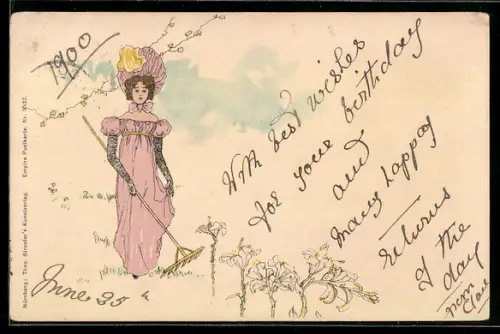 1900
With best wishes
for your birthday
and
many happy
returns
of the
day
from
June 25th
Nürnberg: Theo. Stroefer's Kunstverlag. Empire Postkarte. Nr. 3537.